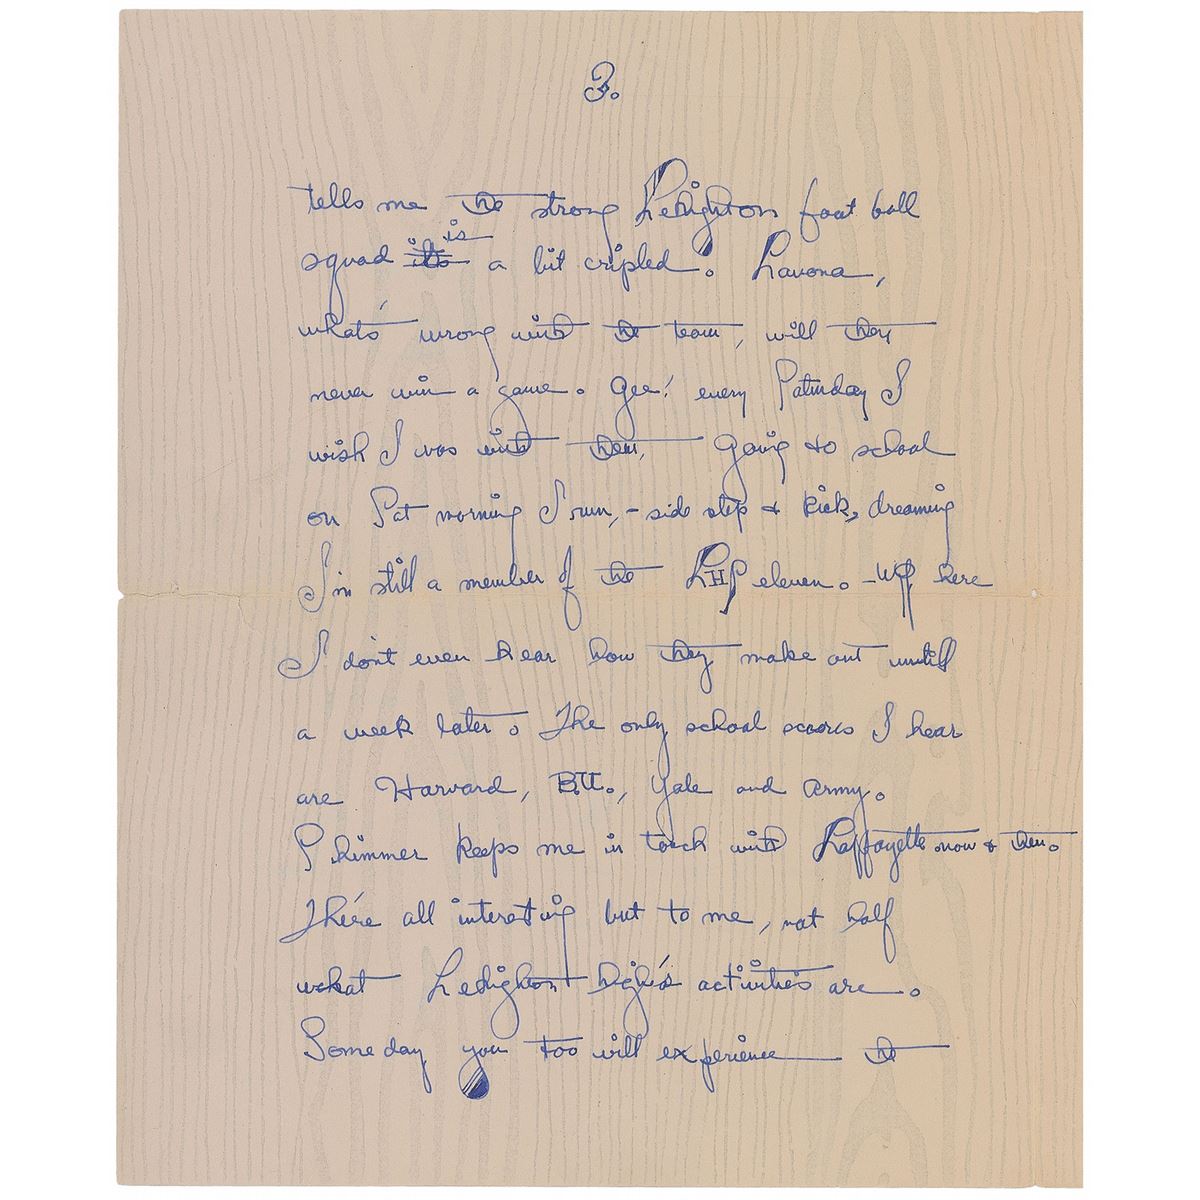 3.
tells me the strong Lehighton foot ball
squad is a bit cripled. Lavona,
what's wrong with the team, will they
never win a game. Gee! every Saturday I
wish I was with them, Going to school
on Sat morning I run, - side step & kick, dreaming
I'm still a member of the LHS eleven. - Up here
I don't even hear how they make out untill
a week later. The only school scores I hear
are Harvard, B.U., Yale and Army.
Shimmer keeps me in touch with Laffayette now & then.
The're all interesting but to me, not half
what Lehighton high's activities are.
Some day you too will experience the